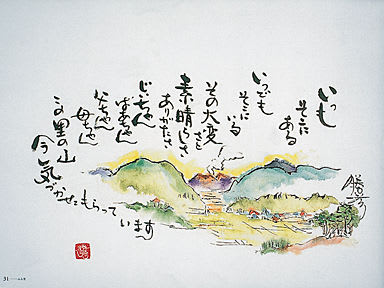 いつも
そこにある
いつでも
そこにいる
その大変さと
素晴らしさ
ありがたさ
じいちゃん
ばあちゃん
父ちゃん
母ちゃん
この里の山
今気づかせてもらって
います
31